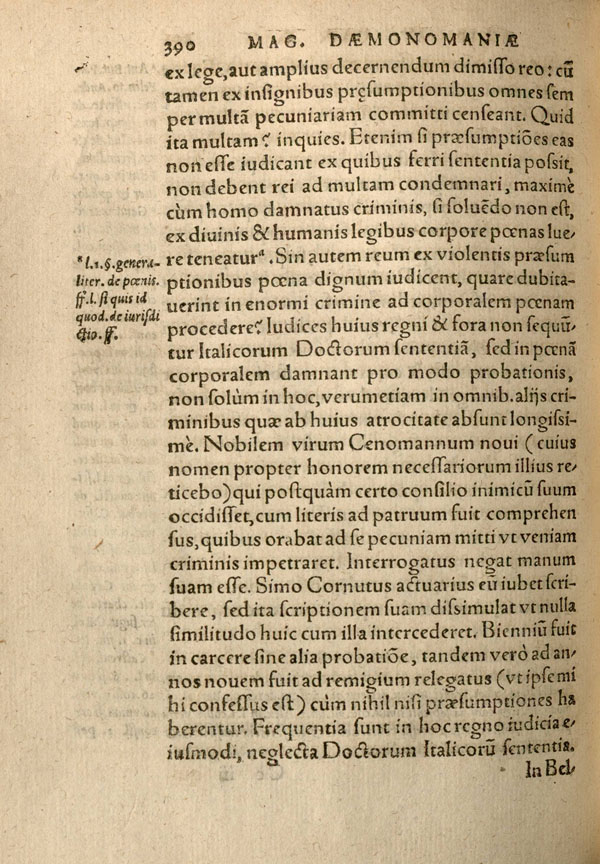 390 MAG. DÆMONOMANIÆ
ex lege, aut amplius decernendum dimiſſo reo: cū
tamen ex inſignibus pręſumptionibus omnes ſem
per multā pecuniariam committi cenſeant. Quid
ita multam? inquies. Etenim ſi præſumptiōes eas
non eſſe iudicant ex quibus ferri ſententia poſsit,
non debent rei ad multam condemnari, maximè
cùm homo damnatus criminis, ſi ſoluēdo non eſt,
ex diuinis & humanis legibus corpore pœnas lue-
re teneatur ᵃ. Sin autem reum ex violentis præſum
ptionibus pœna dignum iudicent, quare dubita-
uerint in enormi crimine ad corporalem pœnam
procedere? Iudices huius regni & fora non ſequū-
tur Italicorum Doctorum ſententiā, ſed in pœnā
corporalem damnant pro modo probationis,
non ſolùm in hoc, verumetiam in omnib. alijs cri-
minibus quæ ab huius atrocitate abſunt longiſsi-
mè. Nobilem virum Cenomannum noui (cuius
nomen propter honorem neceſſariorum illius re-
ticebo) qui poſtquàm certo conſilio inimicū ſuum
occidiſſet, cum literis ad patruum fuit comprehen
ſus, quibus orabat ad ſe pecuniam mitti vt veniam
criminis impetraret. Interrogatus negat manum
ſuam eſſe. Simo Cornutus actuarius eū iubet ſcri-
bere, ſed ita ſcriptionem ſuam diſsimulat vt nulla
ſimilitudo huic cum illa intercederet. Bienniū fuit
in carcere ſine alia probatiōe, tandem verò ad an-
nos nouem fuit ad remigium relegatus (vt ipſe mi
hi confeſſus eſt) cùm nihil niſi præſumptiones ha
berentur. Frequentia ſunt in hoc regno iudicia e-
iuſmodi, neglecta Doctorum Italicorū ſententia.
In Bel-
ᵃ l.1.§.genera-
liter. de pœnis.
ff. l. ſi quis id
quod. de iuriſdi
ctio. ff.